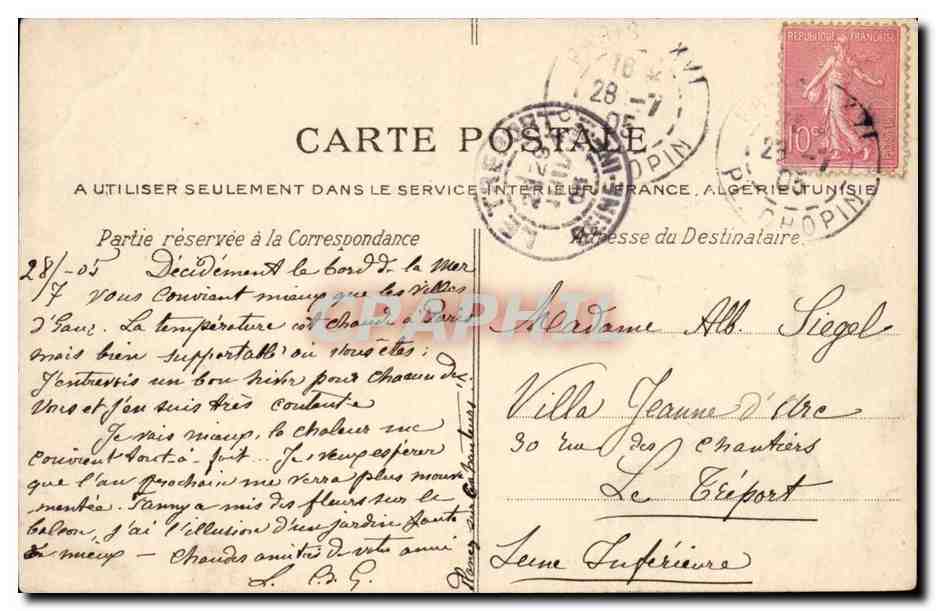 PARIS XVI
28 -7
05
R. CHOPIN
REPUBLIQUE FRANÇAISE
10 c
PARIS XVI
28 -7
05
PL. CHOPIN
LE TREPORT
SEINE INFRE
05
CARTE POSTALE
A UTILISER SEULEMENT DANS LE SERVICE INTERIEUR, FRANCE, ALGÉRIE, TUNISIE
Partie réservée à la Correspondance
Adresse du Destinataire
CPAPHIL
28/7 -05 Décidément le bord de la mer
vous convient mieux que les villes
d'Eaux. La température est chaude à Paris
mais bien supportable où vous êtes;
J'entrevois un bon hiver pour chacun de
vous et j'en suis très contente
Je vais mieux, la chaleur me
convient tout-à-fait... Je veux espérer
que l'an prochain me verra plus mouve
mentée. Fanny a mis des fleurs sur le
balcon, j'ai l'illusion d'un jardin faute
de mieux - chaudes amitiés de votre amie
L. C. d. G.
sur les hauteurs
Madame Alb. Siegel
Villa Jeanne d'Arc
30 rue des Chantiers
Le Tréport
Seine Inférieure